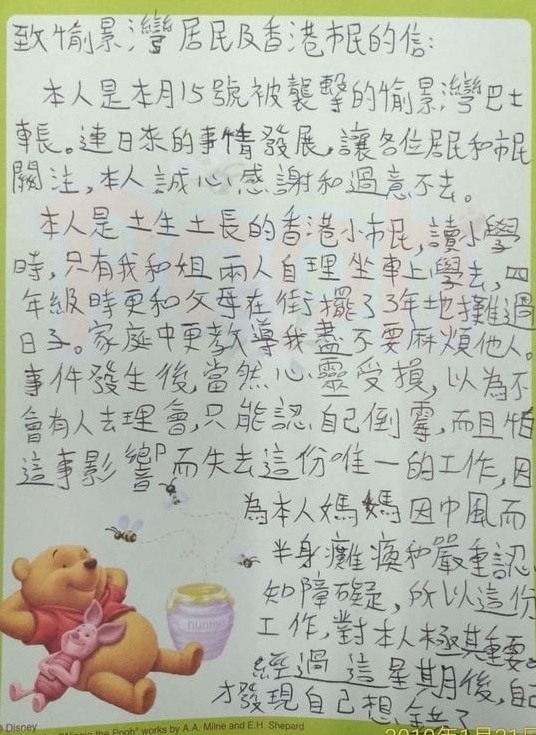 致愉景灣居民及香港市民的信:
本人是本月15號被襲擊的愉景灣巴士
車長。連日來的事情發展,讓各位居民和市民
關注,本人誠心感謝和過意不去。
本人是土生土長的香港小市民,讀小學
時,只有我和姐兩人自理坐車上學去,四
年級時更和父母在街擺了3年地攤過
日子。家庭中更教導我盡不要麻煩他人。
事件發生後,當然心靈受損,以為不
會有人去理會,只能認自己倒霉,而且怕
這事影響而失去這份唯一的工作,因
為本人媽媽因中風而
半身癱瘓和嚴重認
知障礙,所以這份
工作,對本人極其重要。
經過這星期後,自己
才發現自己想錯了
hunny
Disney
"Winnie the Pooh" works by A.A. Milne and E.H. Shepard